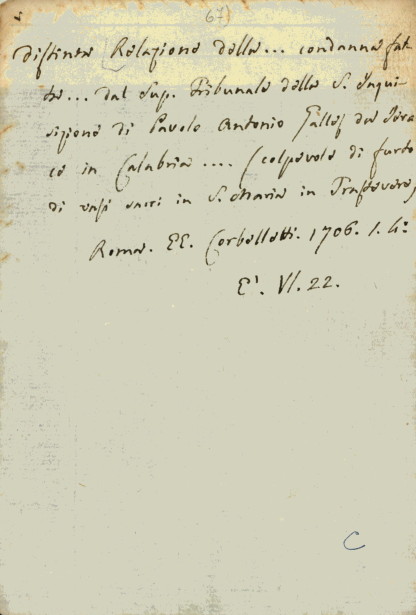 67)
distinta Relazione della... condanna fat
ta... dal Sup. Tribunale della S. Inqui-
sizione di Pavolo Antonio da Gera
ce in Calabria .... (colpevole di furto
di vasi sacri in S. Maria in Trastevere)
Roma. EE. Corbelletti. 1706. 1. 4°
E'. VI. 22.
C